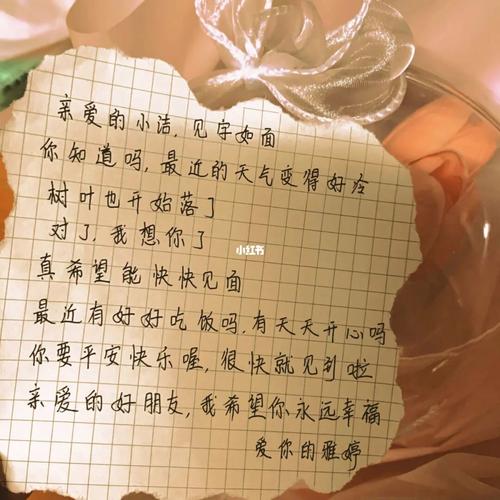 亲爱的小洁,见字如面
你知道吗,最近的天气变得好冷
树叶也开始落了
对了,我想你了
小红书
真希望能快快见面
最近有好好吃饭吗,有天天开心吗
你要平安快乐喔,很快就见到啦
亲爱的好朋友,我希望你永远幸福
爱你的雅婷